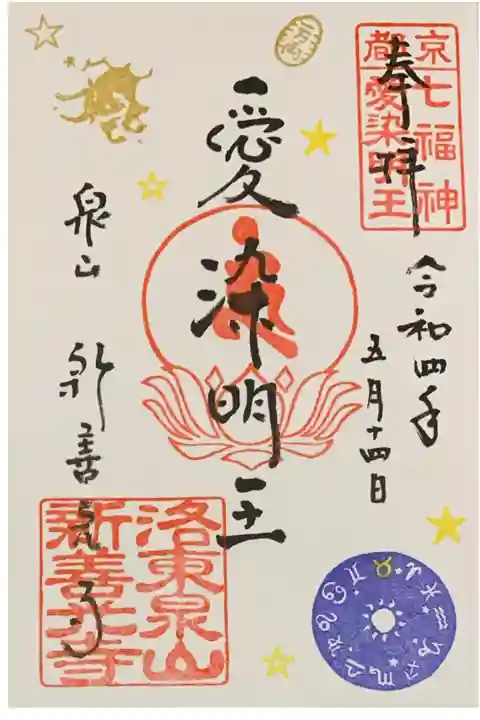 奉拝
京都七福神
愛染明王
令和四年
五月十四日
愛染明王
泉山
新善光寺
洛東泉山
新善光寺